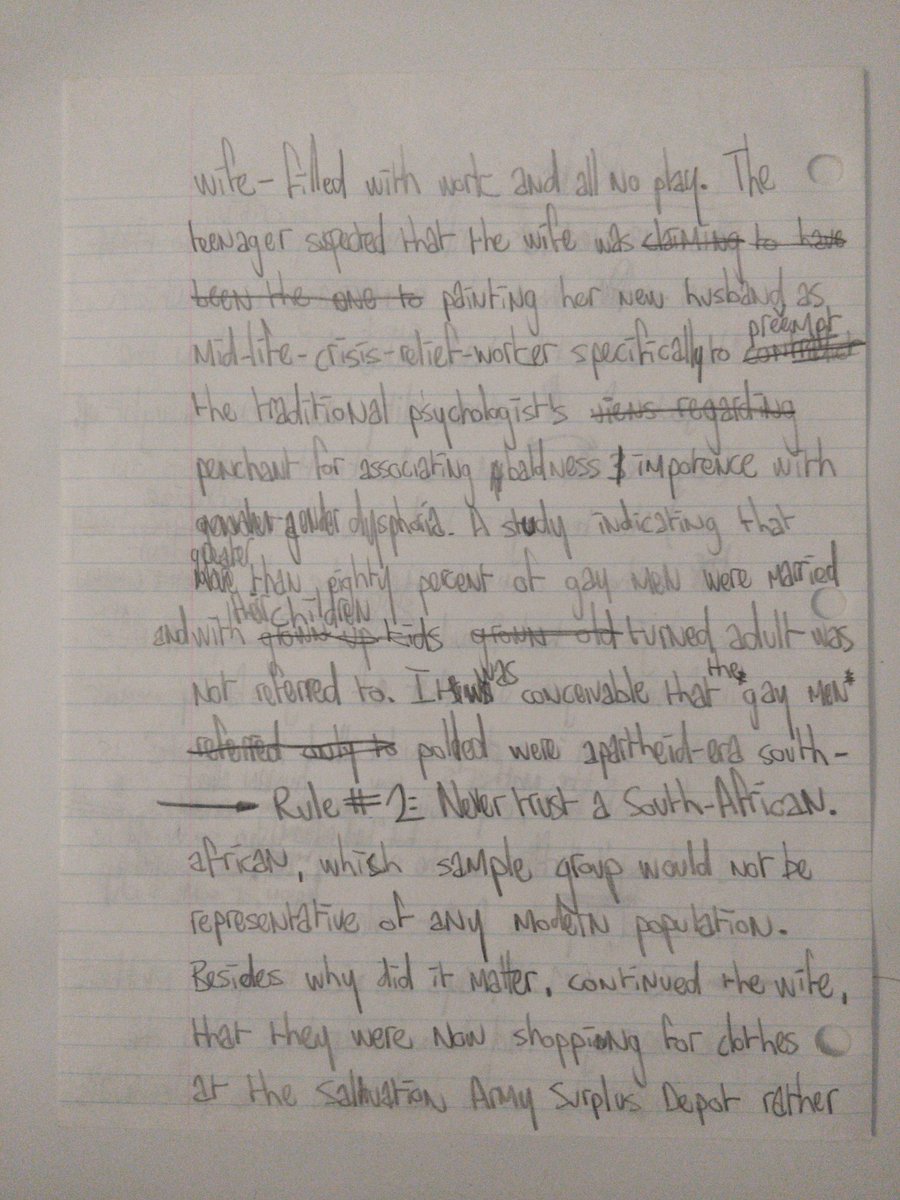 wife-filled with work and all no play. The
teenager suspected that the wife was claiming to have
been the one to painting her new husband as
preempt
mid-life-crisis-relief-worker specifically to
the traditional psychologist's views regarding
penchant for associating baldness & impotence with
gender dysphoria. A study indicating that
greater
more than eighty percent of gay men were married
their children
and with grown up kids grown old turned adult was
was the*
not referred to. It conceivable that gay men*
referred only to polled were apartheid-era south-
→ Rule #2: Never trust a South-African.
african, which sample group would not be
representative of any modern population.
Besides why did it matter, continued the wife,
that they were now shopping for clothes
at the Salvation Army Surplus Depot rather